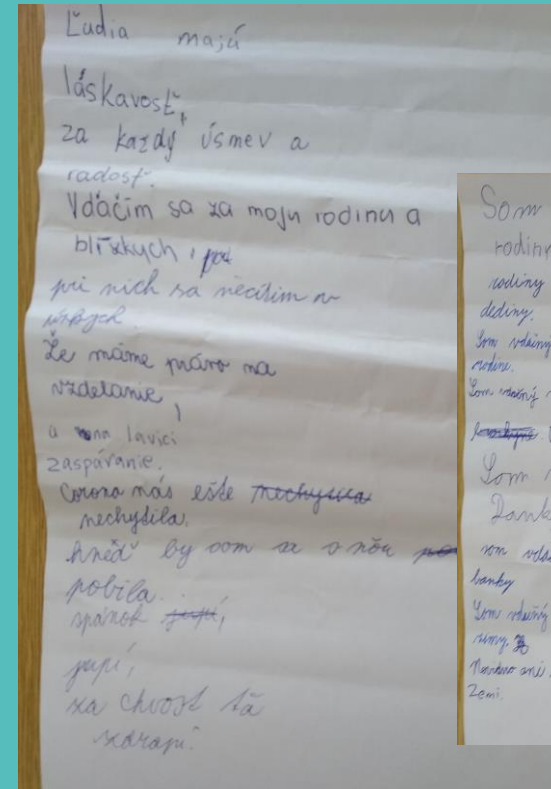 Ľudia majú
láskavosť,
za každý úsmev a
radosť.
Vďačím sa za moju rodinu a
blízkych,
pri nich sa necítim v
Že máme právo na
vzdelanie,
a na lavici
zaspávanie.
Corona nás ešte
nechytila.
hneď by som sa s ňou
pobila.
spánok
jupí,
za chvost ťa
Som
rodiny
dediny.
Som vďačný
rodine.
Som vďačný
Som
som
banky
Som vďačný
zimy.
ani
Zemi.